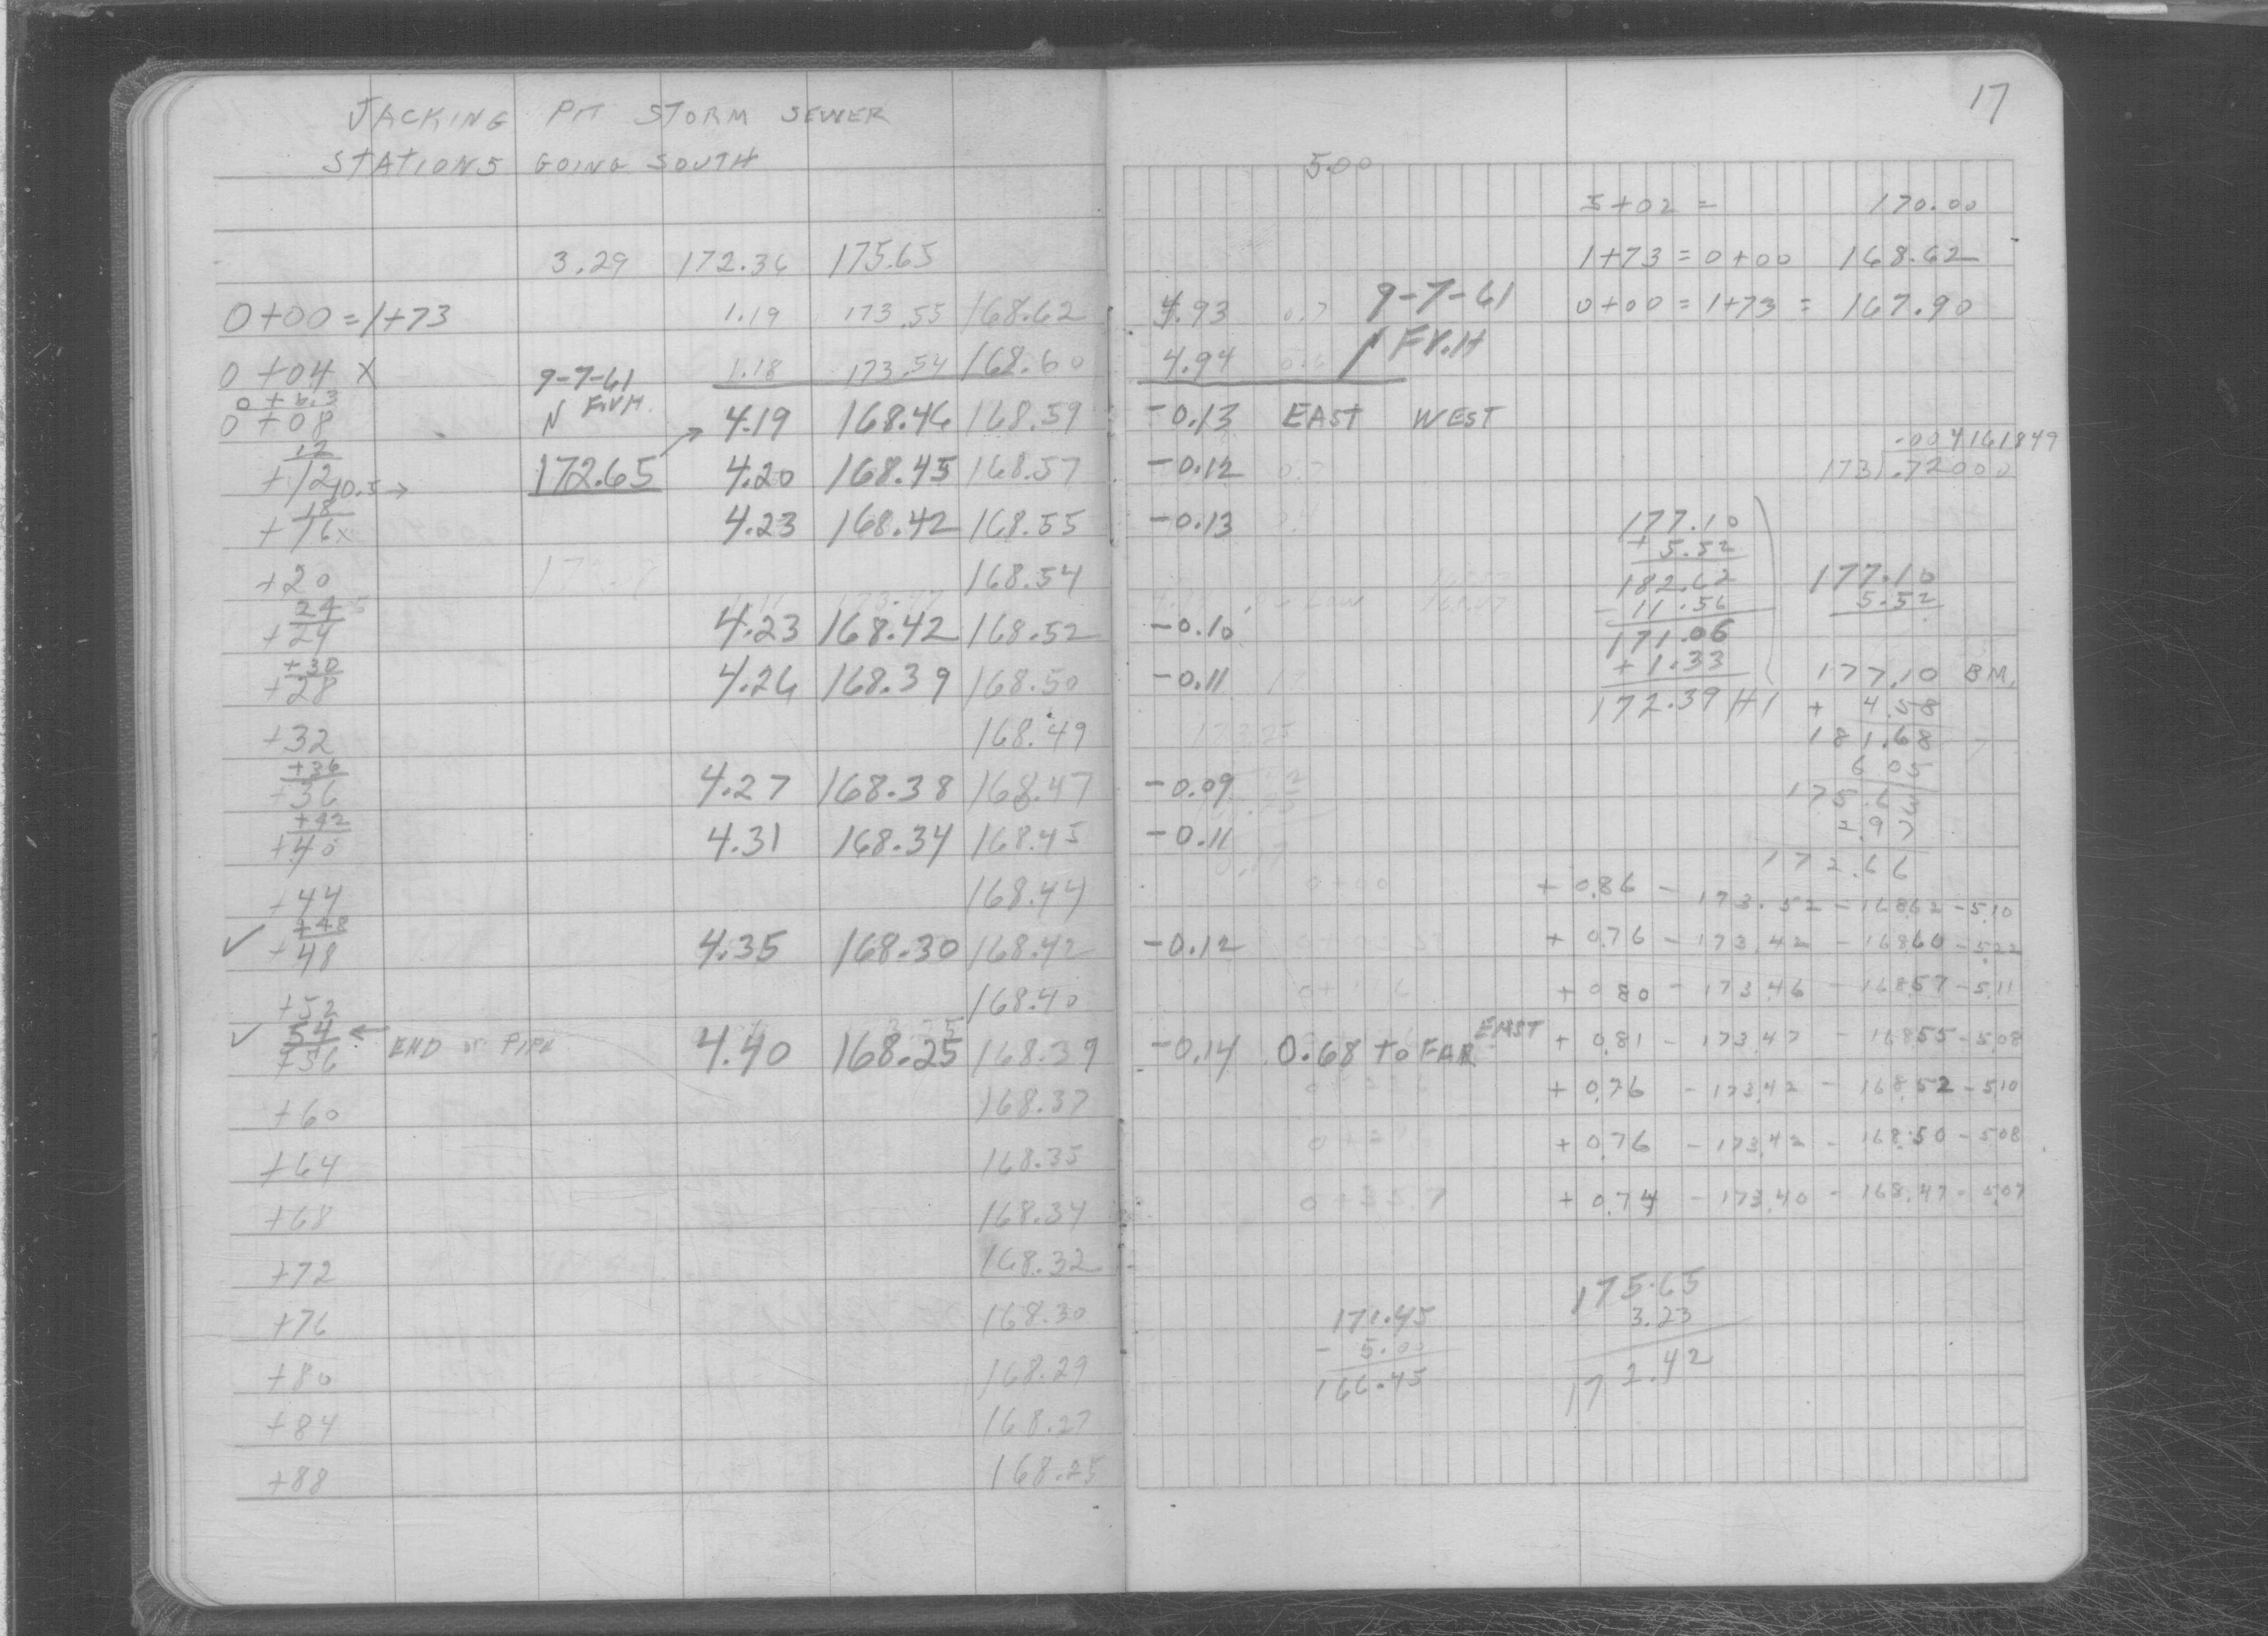 17
JACKING PIT STORM SEWER
STATIONS GOING SOUTH
5.00
5+02 = 170.00
3.29 172.36 175.65
1+73 = 0+00 168.62
0+00 = 1+73 1.19 173.55 168.62 4.93 0.7 9-7-61
0+00 = 1+73 = 167.90
0+04 X 1.18 173.54 168.60 4.94 0.6
9-7-61
0+6.3
0+08 4.19 168.46 168.59 -0.13 EAST WEST
12
+12 10.5→ 172.65 4.20 168.45 168.57 -0.12 0.7
.004161849
173 .72000
18
+16 x 4.23 168.42 168.55 -0.13
+20 168.54
24
+24 4.23 168.42 168.52 -0.10
+30
+28 4.26 168.39 168.50 -0.11
+32 168.49
+36
+36 4.27 168.38 168.47 -0.09
+42
+40 4.31 168.34 168.45 -0.11
+44 168.44
+48
✓ +48 4.35 168.30 168.42 -0.12
+52 168.40
✓ 54 ← END OF PIPE
+56 4.40 168.25 168.39 -0.14 0.68 TO FAR EAST
+60 168.37
+64 168.35
+68 168.34
+72 168.32
+76 168.30
+80 168.29
+84 168.27
+88 168.25
177.10
+ 5.52
182.62
- 11.56
171.06
+ 1.33
172.39 HI
177.10
5.52
177.10 BM.
+ 4.58
181.68
6 05
175.63
2.97
172.66
0+00 + 0.86 - 173.52 - 168.62 - 5.10
+ 0.76 - 173.42 - 168.60 - 5.22
+ 0.80 - 173.46 - 168.57 - 5.11
+ 0.81 - 173.47 - 168.55 - 5.08
+ 0.76 - 173.42 - 168.52 - 5.10
+ 0.76 - 173.42 - 168.50 - 5.08
+ 0.74 - 173.40 - 168.47 - 5.07
171.45
- 5.00
166.45
175.65
3.23
172.42